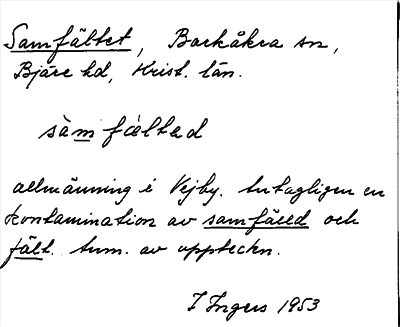 Samfältet, Barkåkra sn,
Bjäre hd, Krist. län.
sàmfälted
allmänning i Vejby. Antagligen en
kontamination av samfälled och
fält. Anm. av uppteckn.
I Ingers 1953